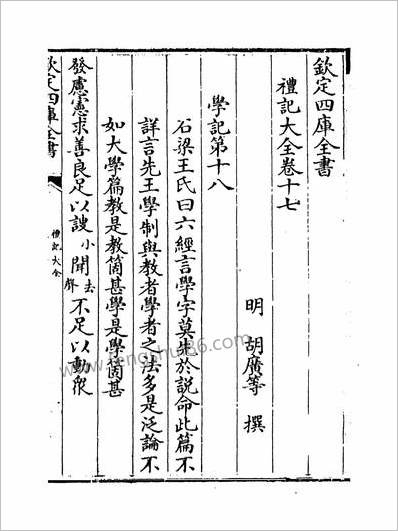 欽定四庫全書
禮記大全卷十七
明 胡廣等 撰
學記第十八
石梁王氏曰六經言學字莫先於說命此篇不
詳言先王學制與教者學者之法多是泛論不
如大學篇教是教箇甚學是學箇甚
發慮憲求善良足以謏小聞去聲不足以動衆
欽定四庫全書
禮記大全
www.fengshui86.com